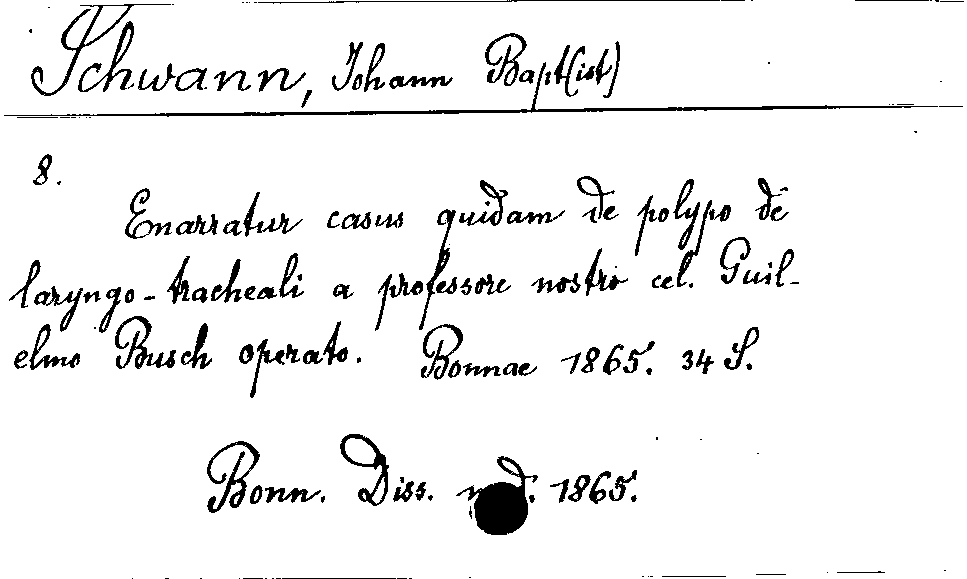 Schwann, Johann Bapt(ist)
8.
Enarratur casus quidam de polypo de
laryngo-tracheali a professore nostro cel. Guil-
elmo Busch operato. Bonnae 1865. 34 S.
Bonn. Diss. 1865.